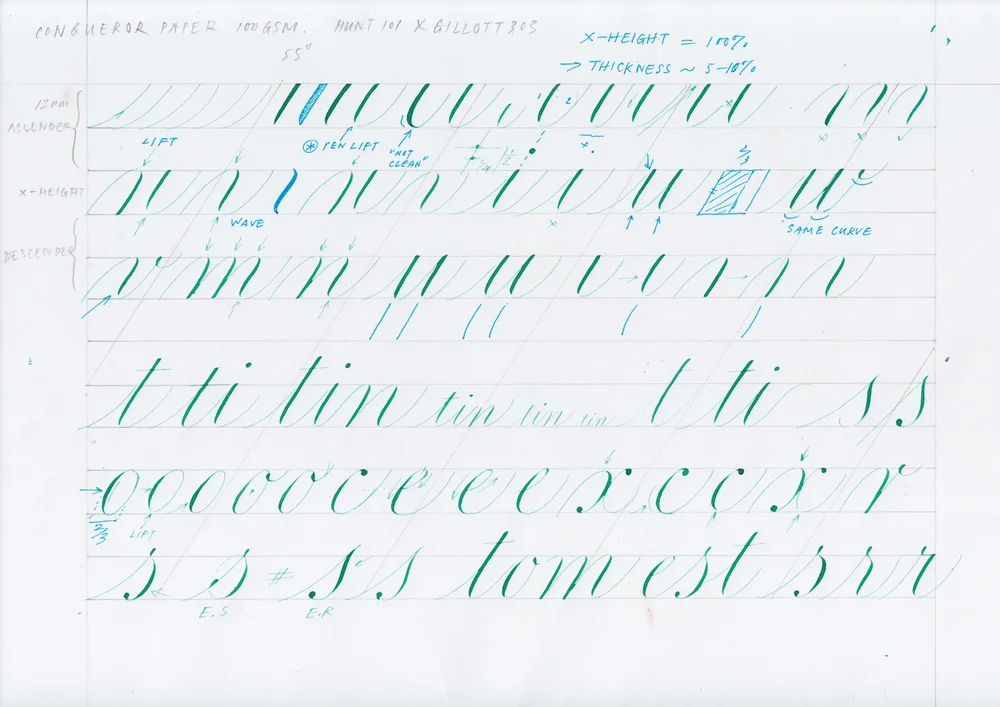 CONQUEROR PAPER 100GSM. HUNT 101 X GILLOTT 303
55°
X-HEIGHT = 100%
→ THICKNESS ~ 5-10%
12mm
ASCENDER
LIFT
* PEN LIFT
"NOT CLEAN"
1/2
2/3
X-HEIGHT
u n n n i i u u
WAVE
SAME CURVE
DESCENDER
r m n u u
t ti tin tin tin tin t ti s s
o o o o o c e e e x c c x r
2/3
LIFT
s s # s s tom est s r r
E.S E.R